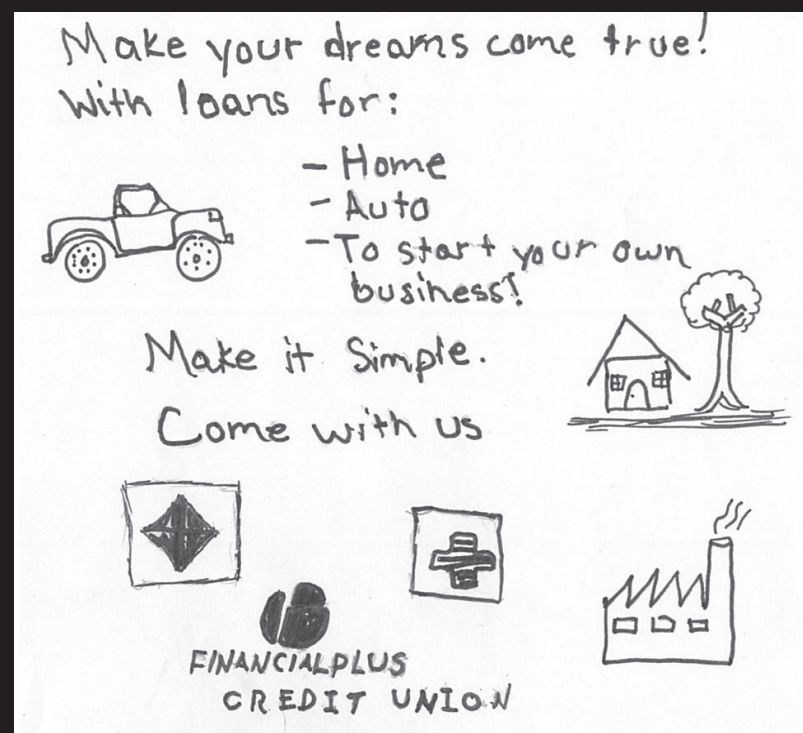 Make your dreams come true!
With loans for:
- Home
- Auto
- To start your own
business!
Make it Simple.
Come with us
FINANCIALPLUS
CREDIT UNION